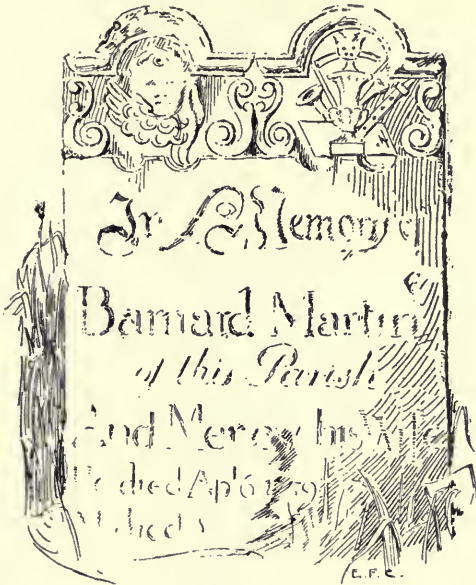 In Memory
Barnard Martin
of this Parish
And Mercy his Wife
He died Ap
E.F.C.